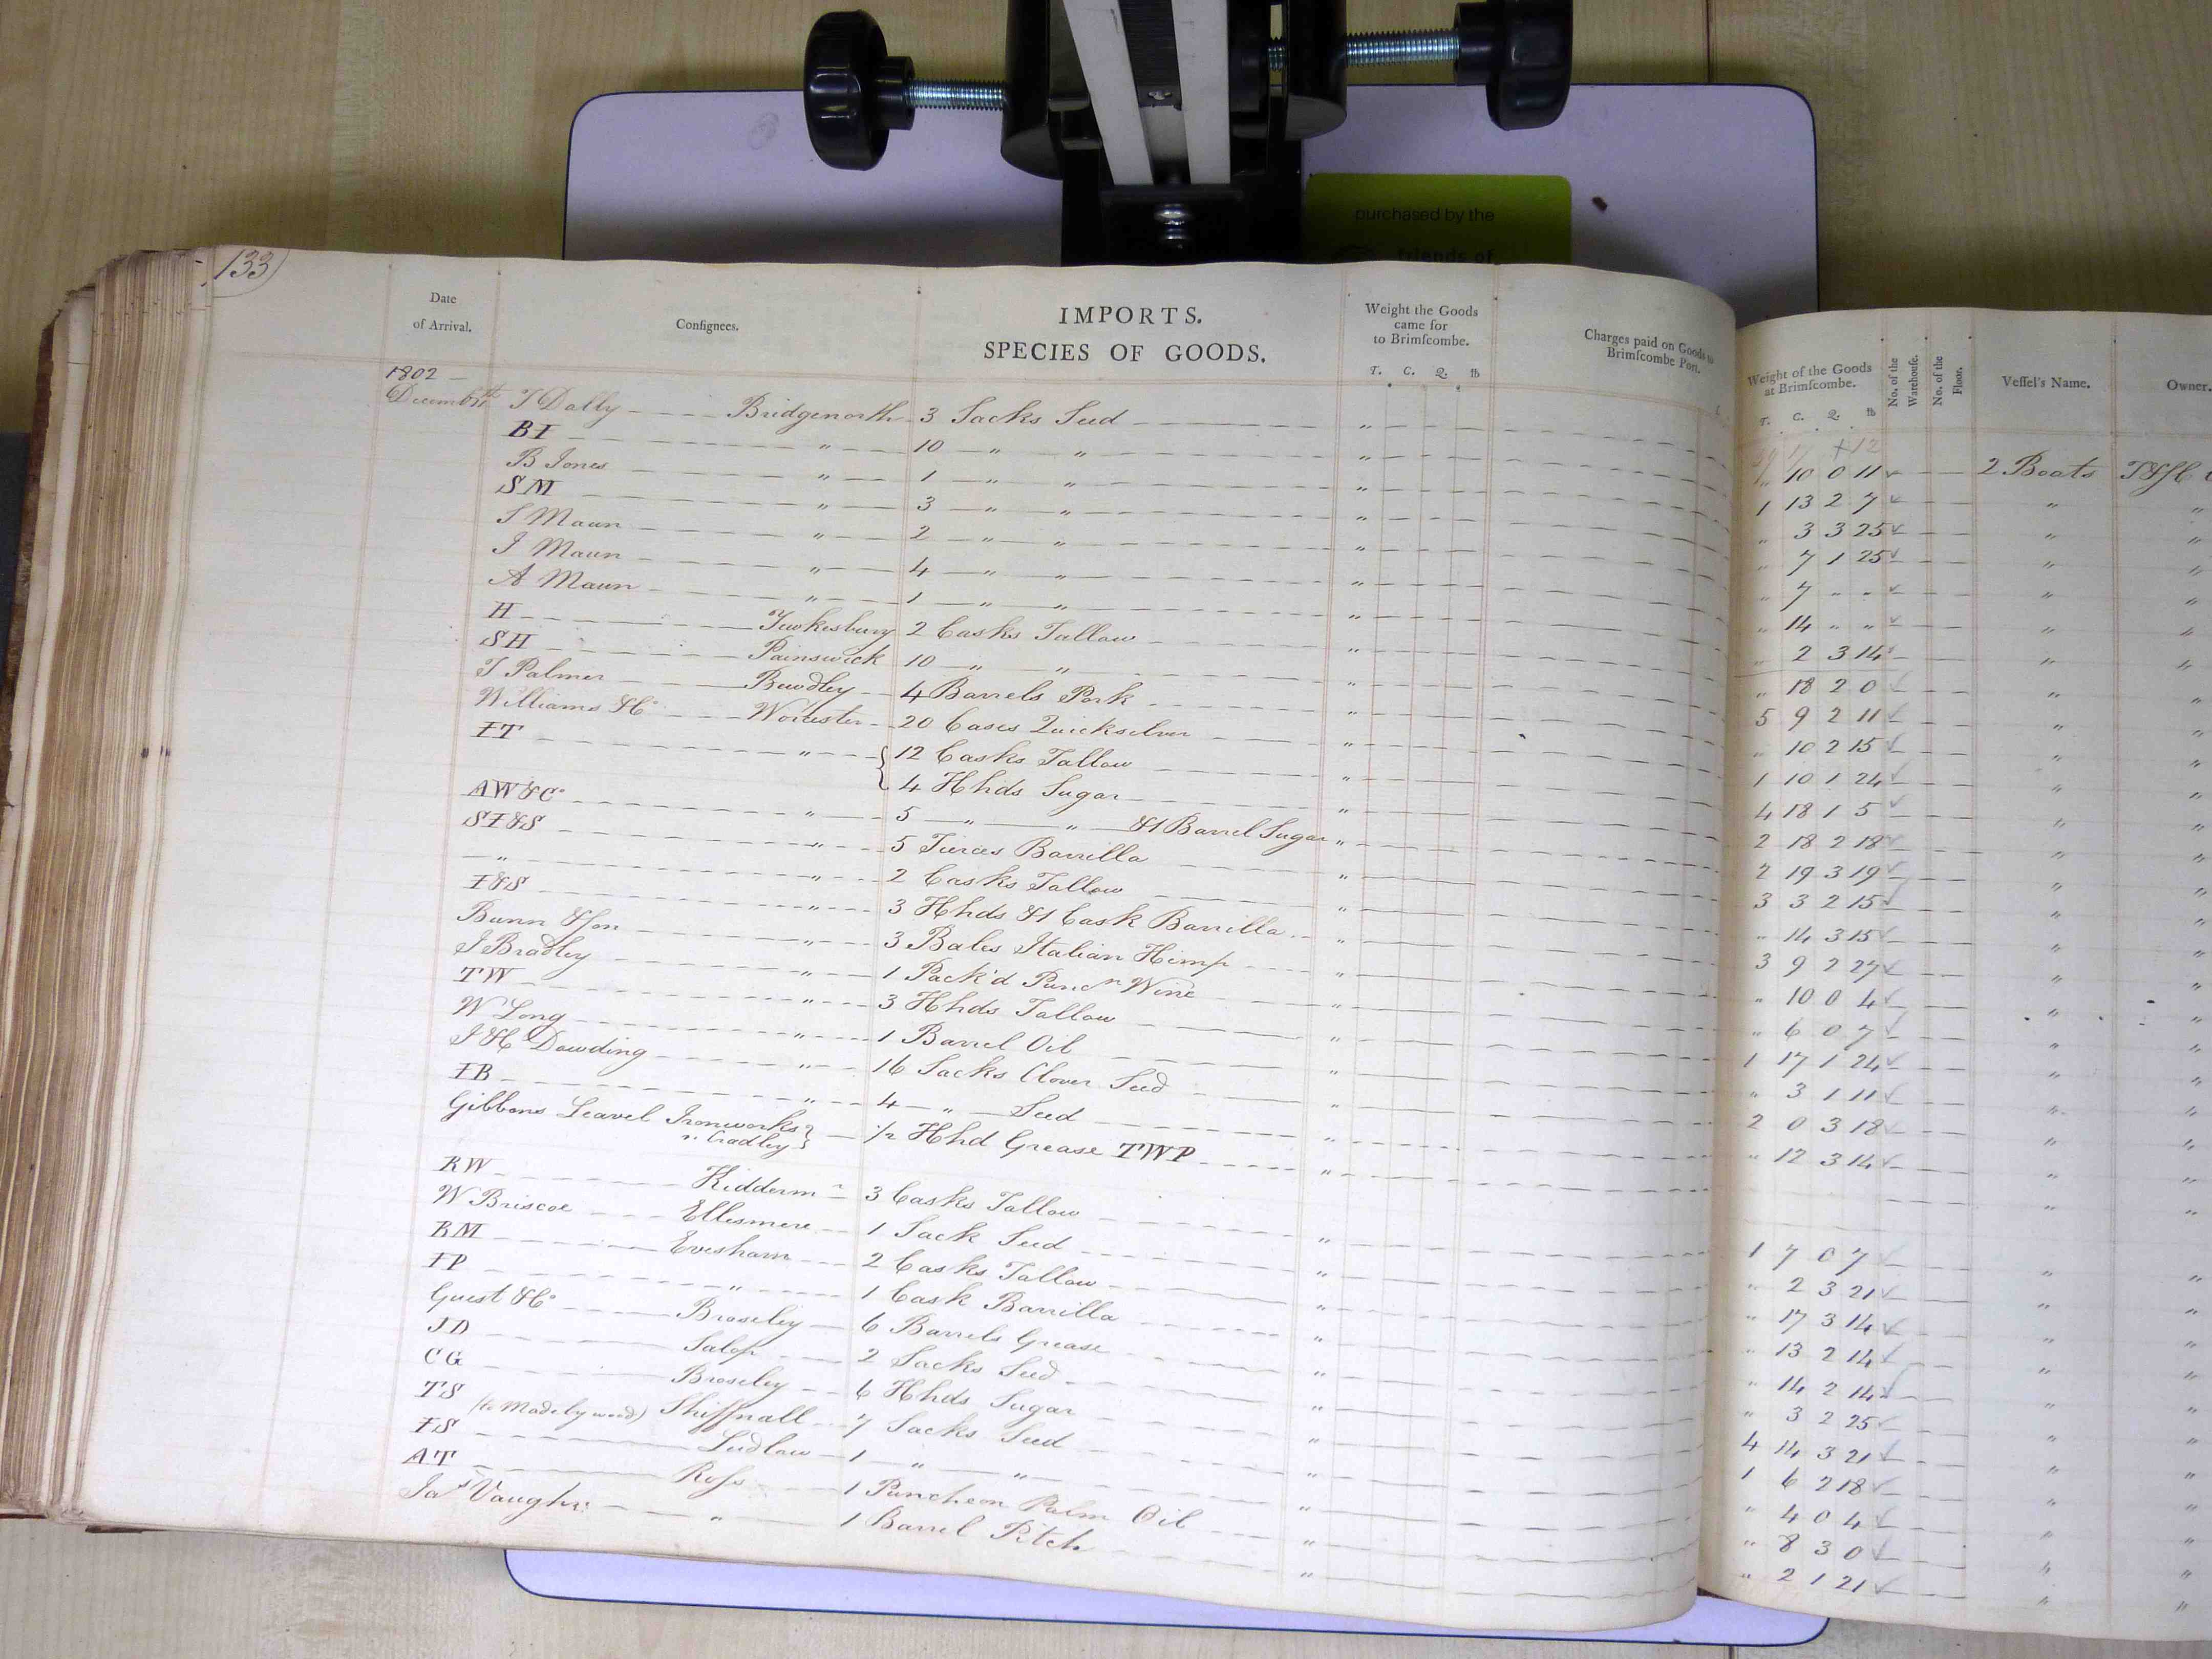 purchased by the
friends of
133
Date of Arrival. Consignees. IMPORTS. SPECIES OF GOODS. Weight the Goods came for to Brimscombe. T. C. Q. lb Charges paid on Goods to Brimscombe Port. Weight of the Goods at Brimscombe. T. C. Q. lb No. of the Warehouse. No. of the Floor. Vessel's Name. Owner.
1802
T Dally Bridgenorth 3 Sacks Seed " " 10 0 11 2 Boats
BI " 10 " " " 1 13 2 7 " "
B Jones " 1 " " " " 3 3 25 " "
SM " 3 " " " " 7 1 25 " "
S Maun " 2 " " " " 7 " " " "
J Maun " 4 " " " " 14 " " " "
A Maun " 1 " " " " 2 3 14 " "
H Tewkesbury 2 Casks Tallow " " 18 2 0 " "
SH Painswick 10 " " " 5 9 2 11 " "
T Palmer Bewdley 4 Barrels Pork " " 10 2 15 " "
Williams & Co Worcester 20 Cases Quicksilver " 1 10 1 24 " "
IT " 12 Casks Tallow " 4 18 1 5 " "
4 Hhds Sugar " 2 18 2 18 " "
AW&Co " 5 " " &1 Barrel Sugar " 2 19 3 19 " "
SI&S " 5 Tierces Barrilla " 3 3 2 15 " "
" " 2 Casks Tallow " " 14 3 15 " "
I&S " 3 Hhds &1 Cask Barrilla " 3 9 2 27 " "
Bunn & Son " 3 Bales Italian Hemp " " 10 0 4 " "
J Bradley " 1 Pack'd Punc'n Wine " " 6 0 7 " "
TW " 3 Hhds Tallow " 1 17 1 24 " "
W Long " 1 Barrel Oil " " 3 1 11 " "
J & H Dowding " 16 Sacks Clover Seed " 2 0 3 18 " "
IB " 4 " Seed " " 12 3 14 " "
Gibbons Leavel Ironworks
nr Cradley 1/2 Hhd Grease TWP "
RW Kidderm'r 3 Casks Tallow " 1 7 0 7 " "
W Briscoe Ellesmere 1 Sack Seed " " 2 3 21 " "
RM Evesham 2 Casks Tallow " " 17 3 14 " "
IP " 1 Cask Barrilla " " 13 2 14 " "
Guest & Co Broseley 6 Barrels Grease " " 14 2 14 " "
JD Salop 2 Sacks Seed " " 3 2 25 " "
CG Broseley 6 Hhds Sugar " 4 14 3 21 " "
TS (to Madelywood) Shiffnall 7 Sacks Seed " 1 6 2 18 " "
IS Ludlow 1 " " " " 4 0 4 " "
AT Ross 1 Puncheon Palm Oil " " 8 3 0 " "
Jas Vaughn " 1 Barrel Pitch " " 2 1 21 " "